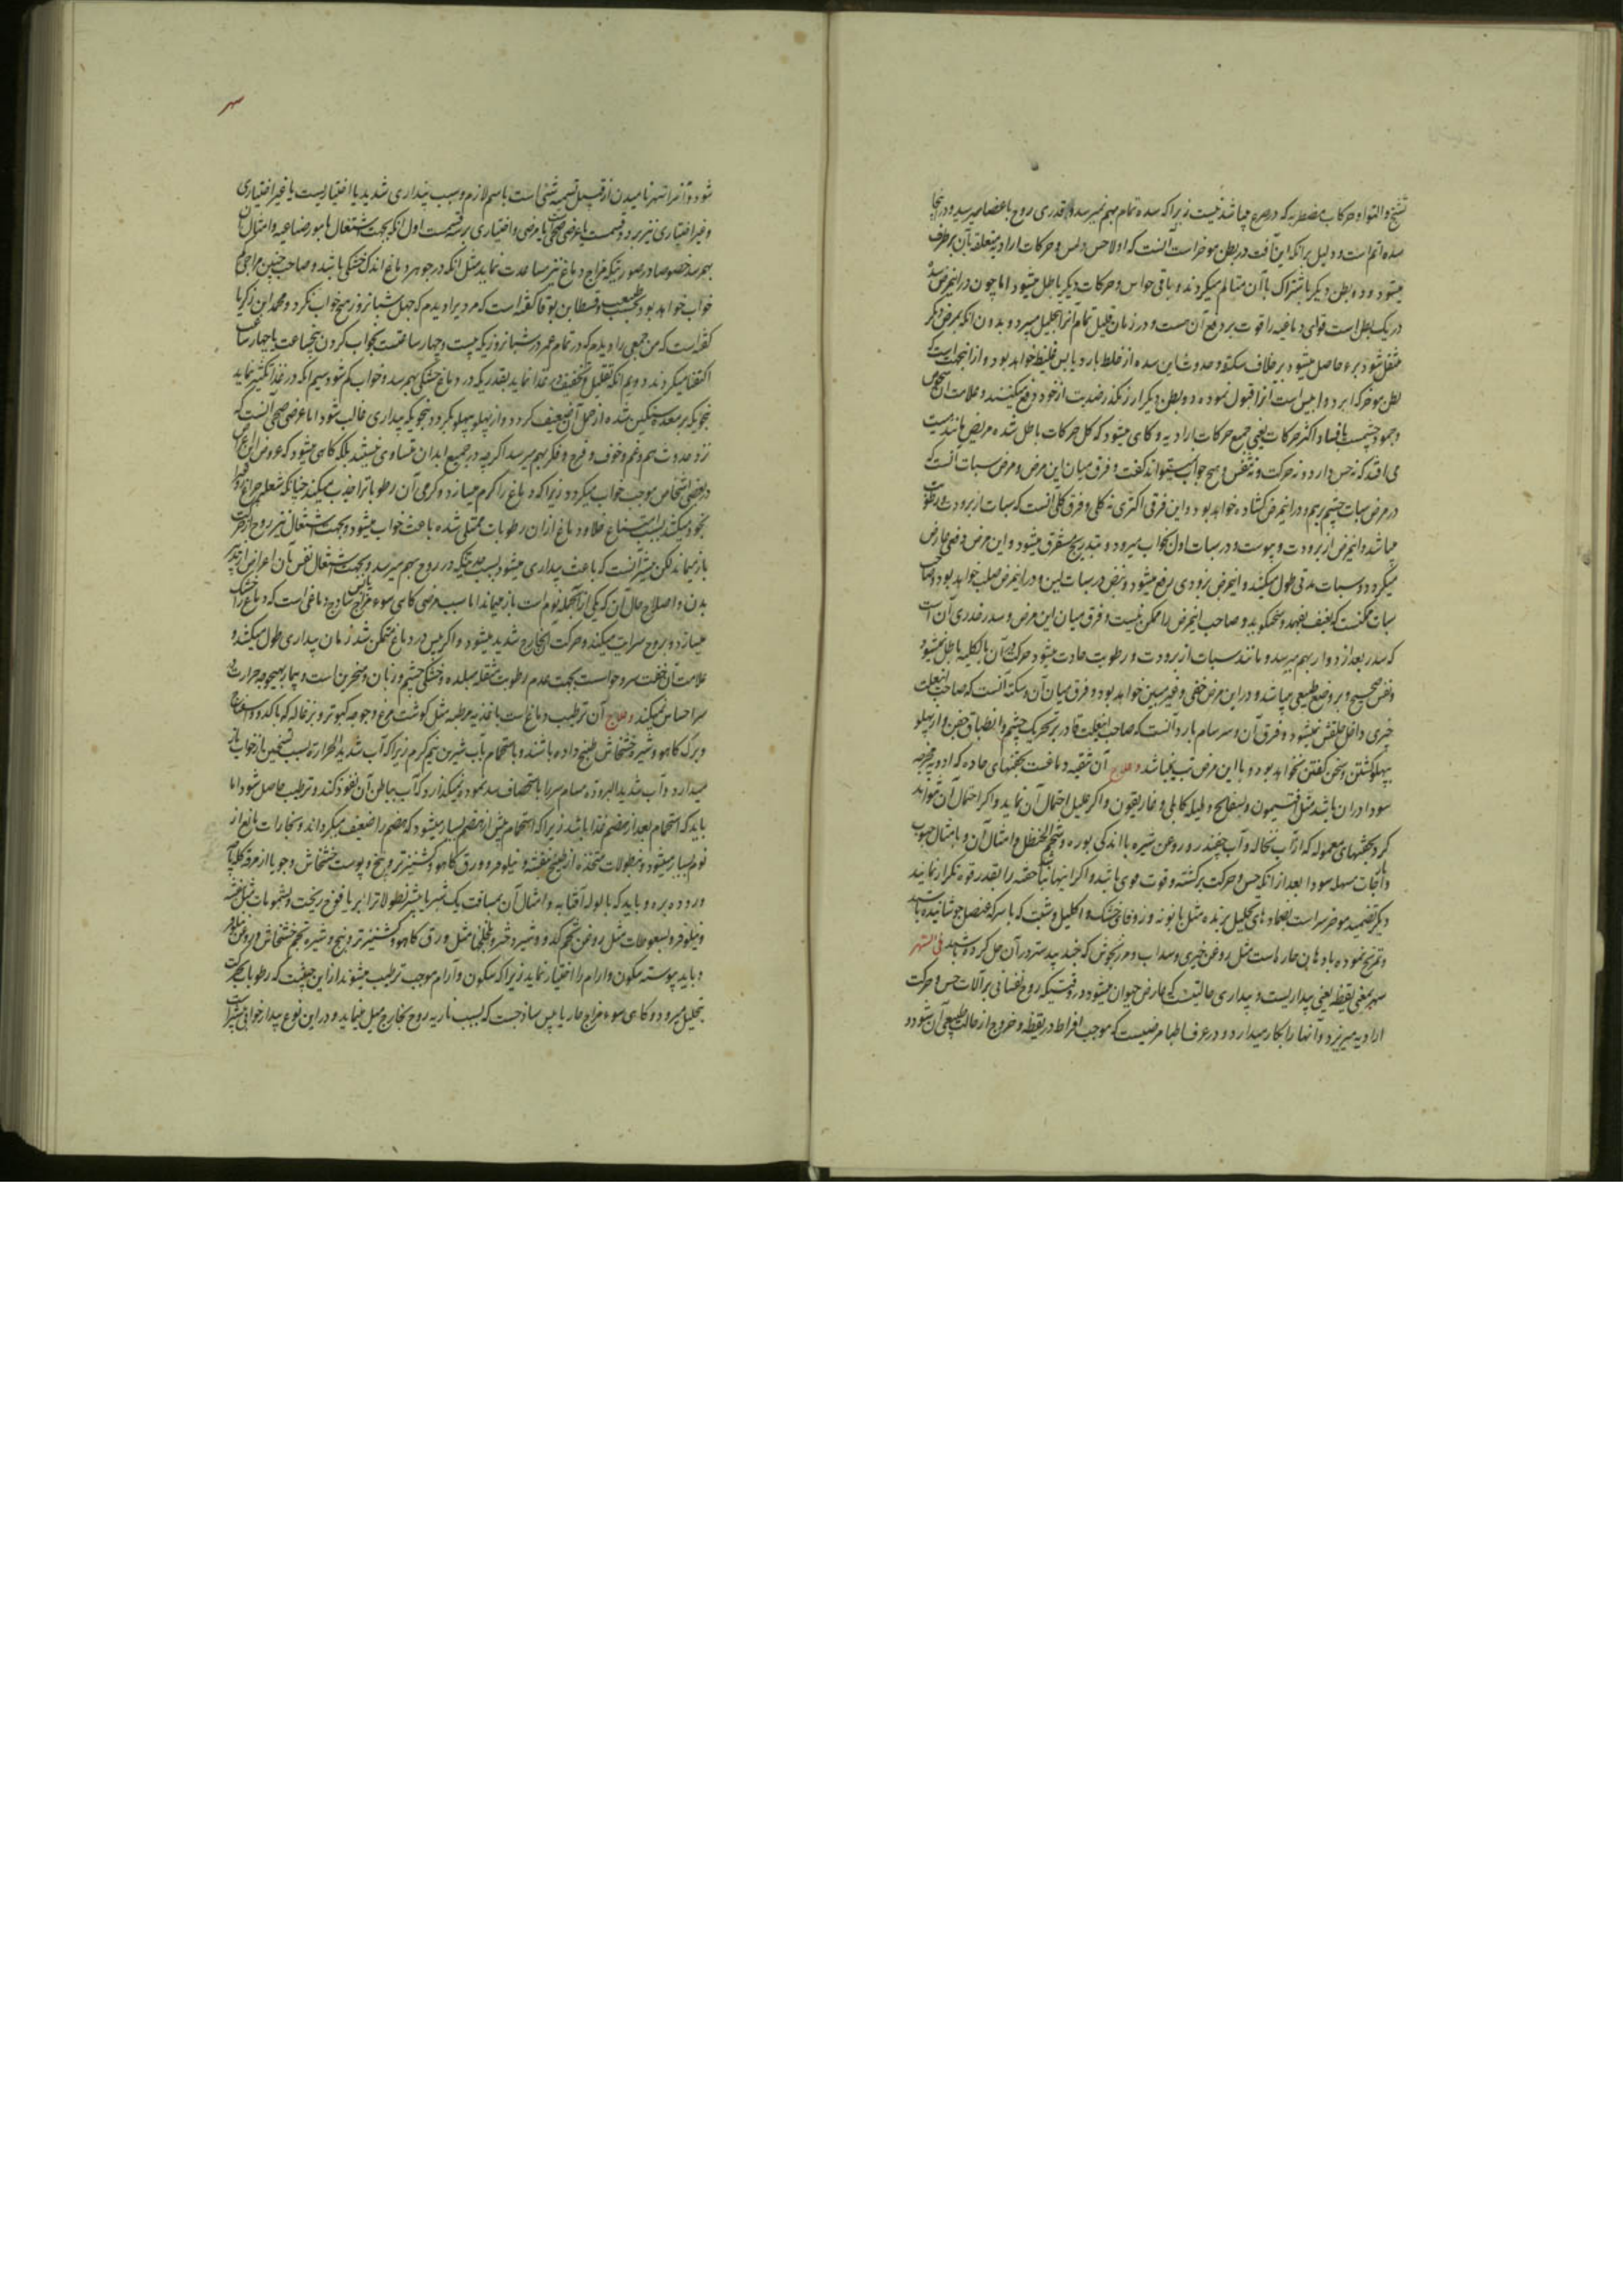 تشنج و التواء و حرکات مضطربه که در صرع میباشد نیست زیرا که سده تمام بهم نمیرسد و قدری روح باعضا میرسد و در اینجا
سده اتم است و دلیل بر آنکه این آفت در بطن موخر است آنست که اولا حس و لمس و حرکات ارادیه متعلقه بآن برطرف
میشود و دو بطن دیگر باشتراک با آن متالم میگردند و باقی حواس و حرکات دیگر باطل میشود اما چون در این مرض سده
در یک بطن است قوای دماغیه را قوت بر دفع آن هست و در زمان قلیل تمام آنرا تحلیل میبرد و بدون آنکه بمرض دیگر
منتقل شود برء حاصل میشود بر خلاف سکته و حدوث این سده از خلط بارد یابس غلیظ خواهد بود و از اینجهت است که
بطن موخر که ابرد و ایبس است آنرا قبول نموده و دو بطن دیگر از خود دفع میکنند و علامت آن شخوص
و جمود چشمست با فساد اکثر حرکات یعنی جمیع حرکات ارادیه و کاهی میشود که کل حرکات باطل شده مریض مانند میت
می افتد که نه حس دارد و نه حرکت و نه تنفس و هیچ جواب نمیتواند کفت و فرق میان این مرض و مرض سبات آنست که
در مرض سبات چشم برهم و در این مرض کشاده خواهد بود و این فرق اکثری نه کلی و فرق کلی آنست که سبات از برودت و رطوبت
میباشد و این مرض از برودت و یبوست و در سبات اول بخواب میرود و بتدریج مستغرق میشود و این مرض دفعی عارض
میکردد و سبات مدتی طول میکشد و این مرض بزودی رفع میشود و نبض در سبات لین و در این مرض صلب خواهد بود و صاحب
سبات ممکنست که بعنف بفهمد و سخن کوید و صاحب این مرض را ممکن نیست و فرق میان این مرض و سدر آن است
که سدر بعد از دوار بهم میرسد و مانند سبات از برودت و رطوبت حادث میشود و حرکت در آن بالکلیه باطل نمیشود
و نفس صحیح و بر وضع طبیعی میباشد و در این مرض خفی و غیر مبین خواهد بود و فرق میان آن و سکته آنست که صاحب اینعلت
چیزی داخل حلقش نمیشود و فرق آن و سرسام بارد آنست که صاحب اینعلت قادر بر تحریک چشم و انطباق جفن و از پهلو
بپهلو کشتن و سخن کفتن نخواهد بود و با این مرض تب نمیباشد و علاج آن تنقیه دماغست بحقنهای حاده که ادویه مخرجه
سودا در آن باشد مثل افتیمون و بسفایج و هلیله کابلی و غاریقون و اکر علیل احتمال آن نماید و اکر احتمال آن نتواند
کرد بحقنهای معموله که از آب نخاله و آب چغندر و روغن شیره با اندکی بوره و شحم الحنظل و امثال آن و بامثال حبوب
و ایارجات مسهل سودا بعد از آنکه حس و حرکت برکشته و قوت قوی باشد و اکر اینها نباشد حقنه را بقدر قوه تکرار نمایند
دیکر تضمید موخر سر است بضمادهای تحلیل برنده مثل بابونه و زوفای خشک و اکلیل و شبت که با سرکه عنصل جوشانیده باشند
و تمریخ نموده بادهان حاره است مثل روغن خیری و سداب و مرزنجوش که جند بیدستر در آن حل کرده باشند فی السهر
سهر بمعنی یقظه یعنی بیداریست و بیداری حالتیست که عارض حیوان میشود در وقتیکه روح نفسانی بر آلات حس و حرکت
ارادیه میریزد و آنها را بکار میدارد و در عرف اطبا مرضیست که موجب افراط در یقظه و خروج از حالت طبیعی آن شود و
سهر
شود و آنرا سهر نامیدن از قبیل تسمیه شئ است باسم لازم و سبب بیداری شدید یا اختیاریست یا غیر اختیاری
و غیر اختیاری نیز بر دو قسمست یا عرضی صحی یا مرضی و اختیاری بر سه قسمست اول آنکه بجهت اشتغال بامور صناعیه و امثال آن
بهم رسد خصوصا در صورتیکه مزاج دماغ نیز مساعدت نماید مثل آنکه در جوهر دماغ اندک خشکی باشد و صاحب چنین مزاجی کم
خواب خواهد بود بحسب طبیعت و قسطا بن لوقا کفته است که مردیرا دیدم که چهل شبانروز هیچ خواب نکرد و محمد ابن زکریا
کفته است که من جمعی را دیدم که در تمام عمر در شبانروزیکه بیست و چهار ساعتست بخواب کردن پنجساعت یا چهار ساعت
اکتفا میکردند دویم آنکه تقلیل و تخفیف در غذا نماید بقدریکه در دماغ خشکی بهم رسد و خواب کم شود سیم آنکه در غذا تکثیر نماید
بنحویکه بر معده سنکین شده از حمل آن ضعیف کردد و از پهلو بپهلو بکردد بنحویکه بیداری غالب شود اما عرضی صحی آنست که
نزد حدوث هم و غم و خوف و فرح و فکر بهم میرسد اکرچه در جمیع ابدان متساوی نیستند بلکه کاهی میشود که عروض این اعراض
در بعضی اشخاص موجب خواب میکردد زیرا که دماغ را کرم میسازد و کرمی آن رطوباترا جذب میکند چنانکه شعله چراغ روغن را
بخود میکشد بسبب امتناع خلا و دماغ از آن رطوبات ممتلی شده باعث خواب میشود و بجهت اشتغال نیز روح از حرکت
باز میماند لکن بیشتر آنست که باعث بیداری میشود بسبب خشکیکه در روح بهم میرسد و بجهت اشتغال نفس بآن اعراض از تدبیر
بدن و اصلاح حال آن که یکی از آنجمله نوم است باز میماند اما سبب مرضی کاهی سوء مزاج یابس ساذج دماغی است که دماغ را خشک
میسازد و بروح سرایت میکند و حرکت بخارج شدید میشود و اکر یبس در دماغ متمکن شد زمان بیداری طول میکشد و
علامت آن خفت سر و حواسست بجهت عدم رطوبت مثقله مبلده و خشکی چشم و زبان و منخرین است و بیمار بهیچوجه حرارت در
سر احساس نمیکند و علاج آن ترطیب دماغ است باغذیه مرطبه مثل کوشت مرغ و جوجه کبوتر و بزغاله که با کدو و اسفناج
و برک کاهو و شیره خشخاش طبخ داده باشند و باستحمام بآب شیرین نیم کرم زیرا که آب شدید الحراره بسبب تسخین از خواب باز
میدارد و آب شدید البروده مسام سر را باستحصاف سد نموده نمیکذارد که آب بباطن آن نفوذ کند و ترطیب حاصل شود اما
باید که استحمام بعد از هضم غذا باشد زیرا که استحمام پیش از هضم بسیار میشود که هضم را ضعیف میکرداند و بخارات مانع از
نوم بسیار میشود و بنطولات متخذه از طبیخ بنفشه و نیلوفر و ورق کاهو و کشنیز تر و بنج و پوست خشخاش و جو یا از مرقه کله پا
و روده بره و باید که بالوله آفتابه و امثال آن بمسافت یک شبر یا بیشتر نطولاترا بر یافوخ ریخت و بشمومات مثل بنفشه
و نیلوفر و بسعوطات مثل روغن تخم کدو و شیر دختر و بلخلخها مثل ورق کاهو و کشنیز تر و بنج و شیره تخم خشخاش و روغن نیلوفر
و باید پیوسته سکون و آرام را اختیار نماید زیرا که سکون و آرام موجب ترطیب میشوند از این حیثیت که رطوبات بحرکت
بتحلیل میرود و کاهی سوء مزاج حار یابس ساذجست که بسبب ناریه روح بخارج میل مینماید و در این نوع بیدار خوابی بیشتر است